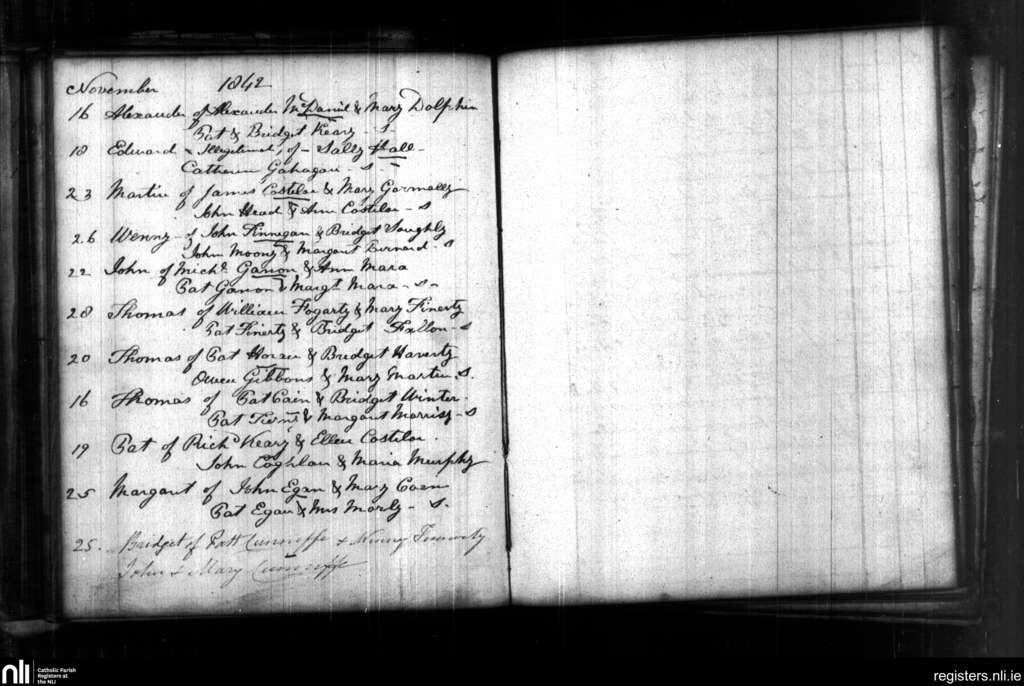 November 1842
16 Alexander of Alexander McDaniel & Mary Dolphin
Pat & Bridget Keary - S.
18 Edward - Illegitimate, of - Sally Hall -
Catherine Gahagan - S.
23 Martin of James Costiloe & Mary Gormally
John Head & Ann Costiloe - S
26 Wenny of John Finnegan & Bridget
John Moony & Margaret - S
22 John of Michl Ganon & Ann Mara
Pat Ganon & Margt Mara - S -
28 Thomas of William Fogarty & Mary Finerty
Pat Finerty & Bridget Fallon - S
20 Thomas of Pat Horan & Bridget Haverty
Owen Gibbons & Mary Martin. S.
16 Thomas of Pat Cain & Bridget Winter.
Pat & Margaret Morrisy - S
19 Pat of Richd Keary & Ellen Costiloe.
John Coghlan & Maria Murphy
25 Margaret of John Egan & Mary
Pat Egan & Mrs - S.
25. Bridget of Patt Cunniffe & Winny
John & Mary Cunniffe
nli Catholic Parish
Registers at
the NLI
registers.nli.ie